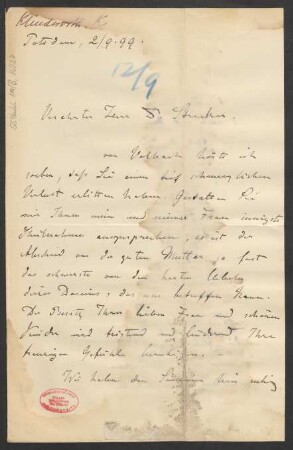 Klindworth, K.
Potsdam, 2/9.99.
12/9
Verehrter Herr Dr. Strecker
von Volbach hörte ich
soeben, daß Sie einen tief schmerzlichen
Verlust erlitten haben. Gestatten Sie
mir Ihnen mein und meiner Frau innigste
Theilnahme auszusprechen, es ist der
Abschied von der guten Mutter ja fast
das schwerste von den herben
dieses Daseins, das uns betreffen kann.
Der Besitz Ihrer lieben Frau und schönen
Kinder wird tröstend und lindernd Ihre
traurigen Gefühle
Wir haben den Sommer hier ruhig